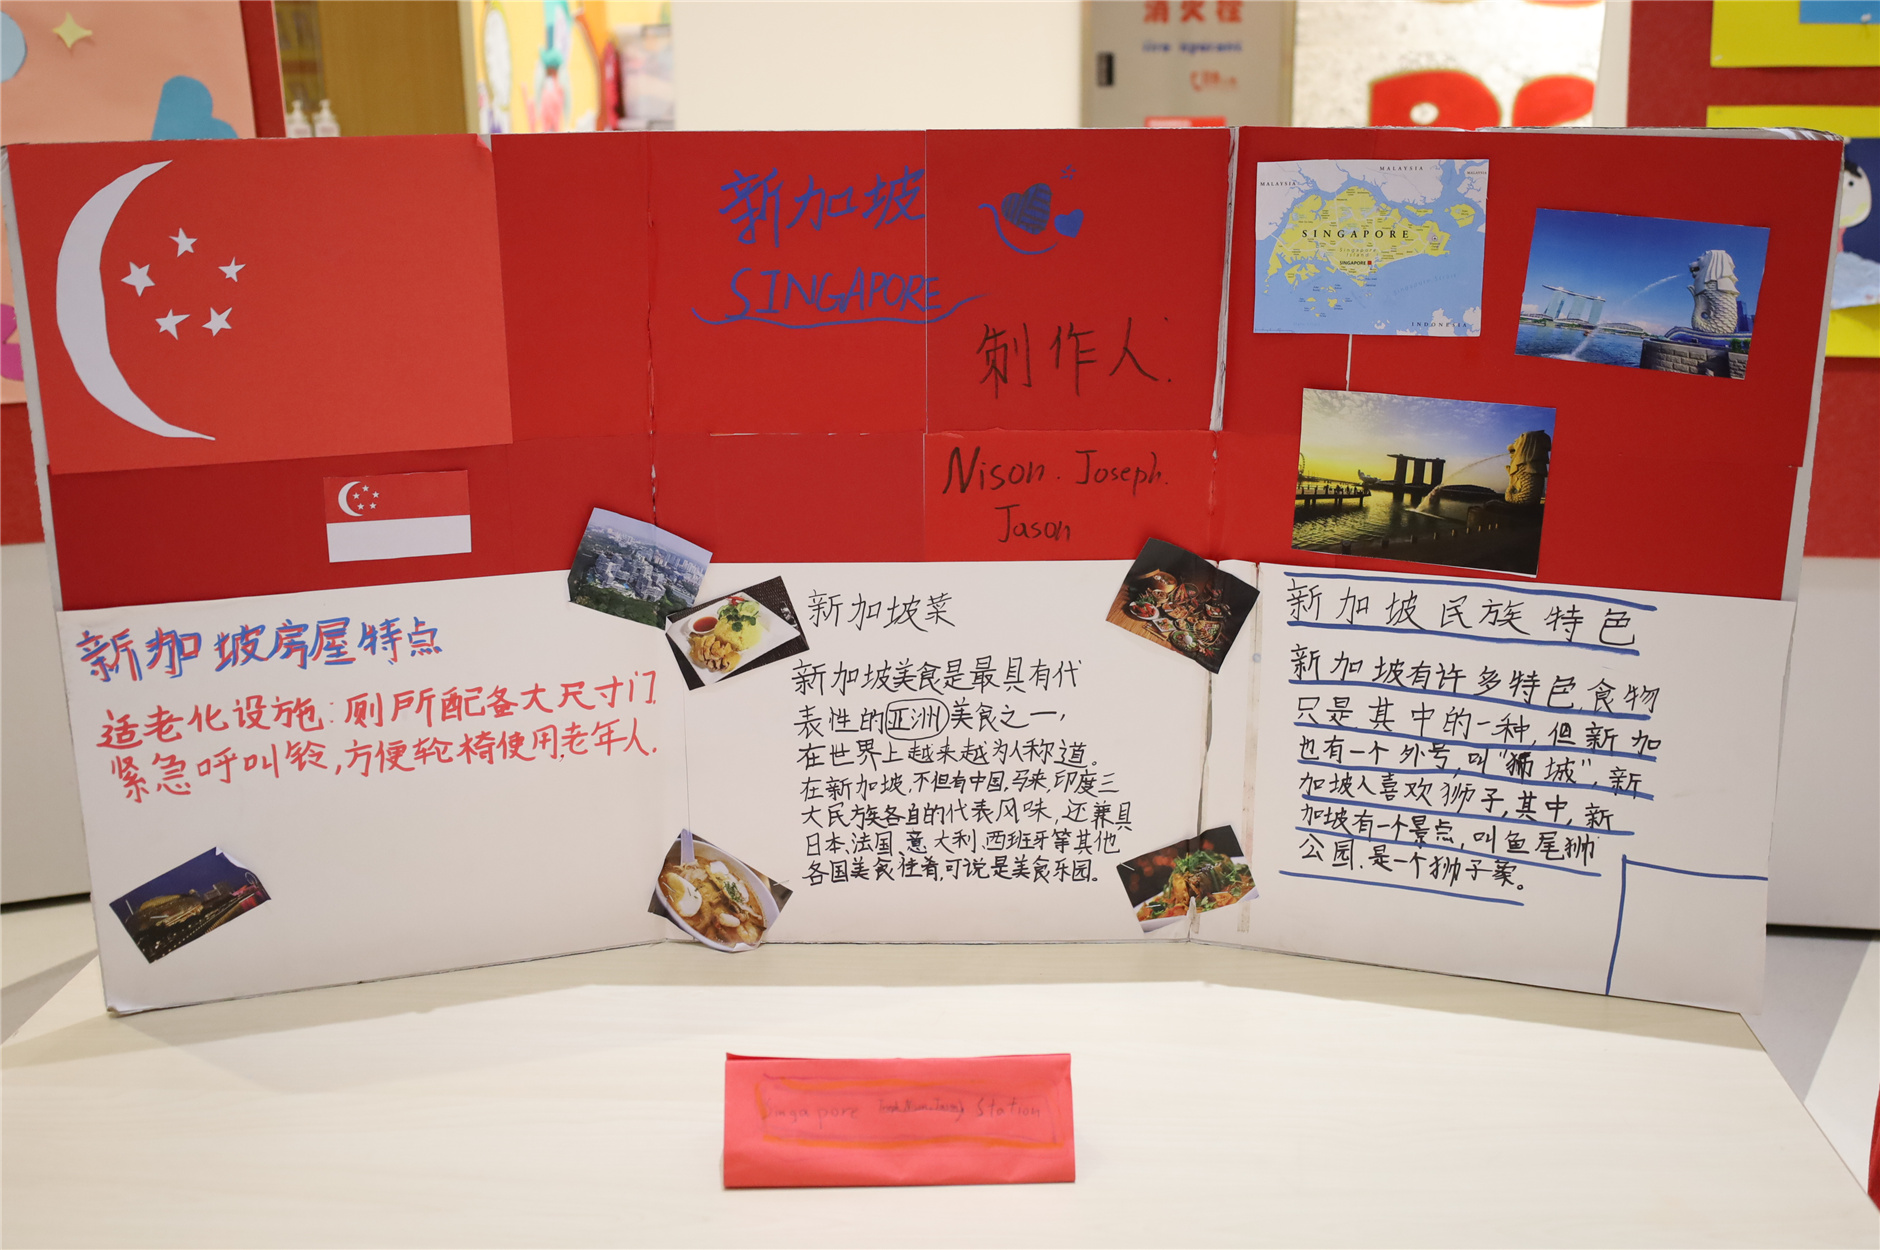 消火栓
新加坡
SINGAPORE
制作人:
Nison. Joseph.
Jason
MALAYSIA
MALAYSIA
MALAYSIA
SINGAPORE
Singapore
Island
SINGAPORE
INDONESIA
新加坡房屋特点
适老化设施:厕所配备大尺寸门,
紧急呼叫铃,方便轮椅使用,老年人.
新加坡菜
新加坡美食是最具有代
表性的亚洲美食之一,
在世界上越来越为人称道。
在新加坡,不但有中国,马来,印度三
大民族各自的代表风味,还兼具
日本、法国、意大利、西班牙等其他
各国美食佳肴,可说是美食乐园。
新加坡民族特色
新加坡有许多特色,食物
只是其中的一种,但新加
也有一个外号,叫“狮城”,新
加坡人喜欢狮子,其中,新
加坡有一个景点,叫鱼尾狮
公园.是一个狮子象。
Singapore
Station